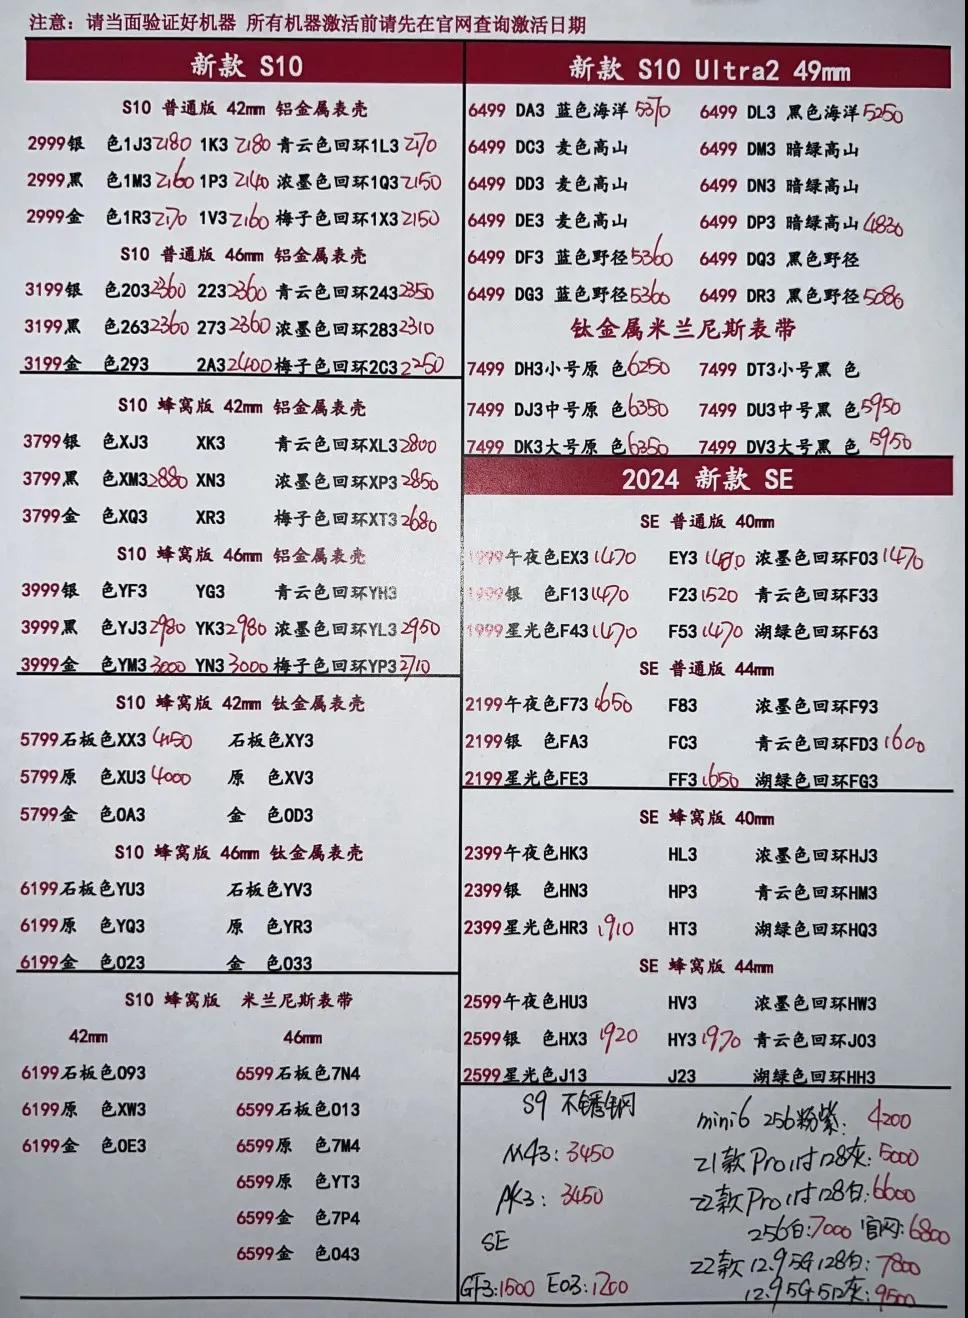 注意：请当面验证好机器 所有机器激活前请先在官网查询激活日期
新款 S10
S10 普通版 42mm 铝合属表壳
2999银 色1J3 2180 1K3 2180 青云色回环1L3 2170
2999黑 色1M3 2160 1P3 2140 浓墨色回环1Q3 2150
2999金 色1R3 2170 1V3 2160 梅子色回环1X3 2150
S10 普通版 46mm 铝金属表壳
3199银 色203 2360 223 2360 青云色回环243 2350
3199黑 色263 2360 273 2360 浓墨色回环283 2310
3199金 色293 2A3 2400 梅子色回环2C3 2250
S10 蜂窝版 42mm 铝金属表壳
3799银 色XJ3 XK3 青云色回环XL3 2800
3799黑 色XM3 2880 XN3 浓墨色回环XP3 2850
3799金 色XQ3 XR3 梅子色回环XT3 2680
S10 蜂窝版 46mm 铝金属表壳
3999银 色YF3 YG3 青云色回环YH3
3999黑 色YJ3 2980 YK3 2980 浓墨色回环YL3 2950
3999金 色YM3 3000 YN3 3000 梅子色回环YP3 2710
S10 蜂窝版 42mm 钛金属表壳
5799石板色XX3 4150 石板色XY3
5799原 色XU3 4000 原 色XV3
5799金 色0A3 金 色0D3
S10 蜂窝版 46mm 钛金属表壳
6199石板色YU3 石板色YV3
6199原 色YQ3 原 色YR3
6199金 色023 金 色033
S10 蜂窝版 米兰尼斯表带
42mm 46mm
6199石板色093 6599石板色7N4
6199原 色XW3 6599石板色013
6199金 色0E3 6599原 色7M4
6599原 色YT3
6599金 色7P4
6599金 色043
新款 S10 Ultra2 49mm
6499 DA3 蓝色海洋 5370 6499 DL3 黑色海洋 5250
6499 DC3 麦色高山 6499 DM3 暗绿高山
6499 DD3 麦色高山 6499 DN3 暗绿高山
6499 DE3 麦色高山 6499 DP3 暗绿高山 4830
6499 DF3 蓝色野径 5360 6499 DQ3 黑色野径
6499 DG3 蓝色野径 5360 6499 DR3 黑色野径 5080
钛金属米兰尼斯表带
7499 DH3小号原 色 6250 7499 DT3小号黑 色
7499 DJ3中号原 色 6350 7499 DU3中号黑 色 5950
7499 DK3大号原 色 6350 7499 DV3大号黑 色 5950
2024 新款 SE
SE 普通版 40mm
1999午夜色EX3 1470 EY3 1480 浓墨色回环F03 1470
1999银 色F13 1470 F23 1520 青云色回环F33
1999星光色F43 1470 F53 1470 湖绿色回环F63
SE 普通版 44mm
2199午夜色F73 1650 F83 浓墨色回环F93
2199银 色FA3 FC3 青云色回环FD3 1600
2199星光色FE3 FF3 1650 湖绿色回环FG3
SE 蜂窝版 40mm
2399午夜色HK3 HL3 浓墨色回环HJ3
2399银 色HN3 HP3 青云色回环HM3
2399星光色HR3 1910 HT3 湖绿色回环HQ3
SE 蜂窝版 44mm
2599午夜色HU3 HV3 浓墨色回环HW3
2599银 色HX3 1920 HY3 1970 青云色回环J03
2599星光色J13 J23 湖绿色回环HH3
S9 不锈钢
M43：3450
AK3：3450
SE
GF3：1500 E03：1200
mini6 256粉紫：4200
21款Pro11寸128灰：5000
22款Pro11寸128白：6600
256白：7000 官网：6800
22款12.9 5G 128白：7800
12.9 5G 512灰：9500